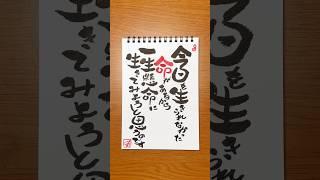 今日を生きれなかった
命があるから
一生懸命に
生きてみようと思うのです